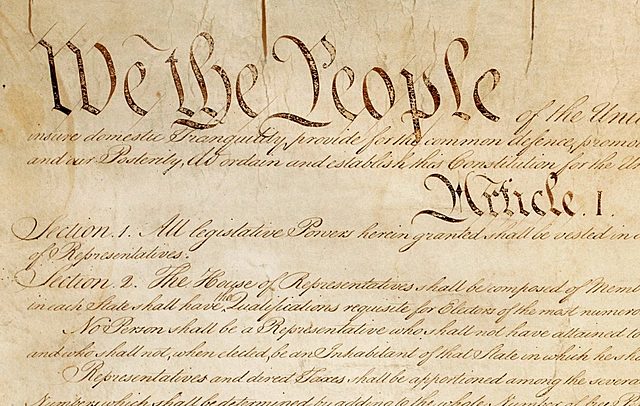 We the People of the Uni
insure domestic Tranquility, provide for the common defence, promo
and our Posterity, do ordain and establish this Constitution for the U
Article. I.
Section. 1. All legislative Powers herein granted shall be vested in a
of Representatives.
Section. 2. The House of Representatives shall be composed of Memb
in each State shall have the Qualifications requisite for Electors of the most numero
No Person shall be a Representative who shall not have attained to
and who shall not, when elected, be an Inhabitant of that State in which he sh
Representatives and direct Taxes shall be apportioned among the severa
Numbers, which shall be determined by adding to the whole Number of free P